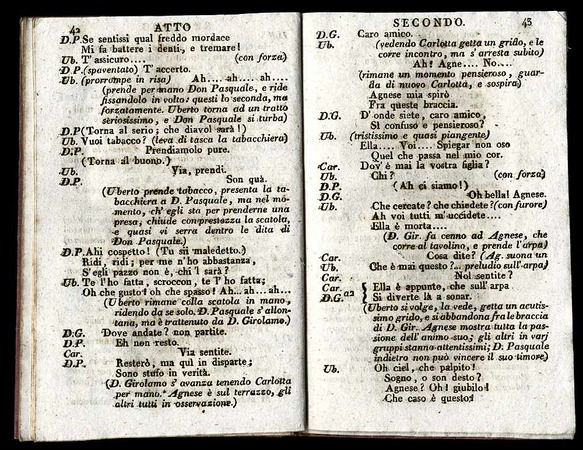 42 ATTO
D.P. Se sentissi qual freddo mordace
Mi fa battere i denti, e tremare!
Ub. T' assicuro.... (con forza)
D.P. (spaventato) T' accerto.
Ub. (prorrompe in risa) Ah.... ah.... ah....
(prende per mano Don Pasquale, e ride
fissandolo in volto: questi lo seconda, ma
forzatamente. Uberto torna ad un tratto
seriosissimo, e Don Pasquale si turba)
D.P. (Torna al serio; che diavol sarà!)
Ub. Vuoi tabacco? (leva di tasca la tabacchiera)
D.P. Prendiamolo pure.
(Torna al buono.)
Ub. Via, prendi.
D.P. Son quà.
(Uberto prende tabacco, presenta la ta-
bacchiera a D. Pasquale, ma nel mo-
mento, ch' egli sta per prenderne una
presa, chiude con prestezza la scatola,
e quasi vi serra dentro le dita di
Don Pasquale.)
D.P. Ahi cospetto! (Tu sii maledetto.)
Ridi, ridi; per me n'ho abbastanza,
S'egli pazzo non è, chi l sarà?
Ub. Te l'ho fatta, scroccon, te l' ho fatta;
Oh che gusto! oh che spasso! Ah... ah... ah...
(Uberto rimane colla scatola in mano,
ridendo da se solo. D. Pasquale s'allon-
tana, ma è trattenuto da D. Girolamo.)
D.G. Dove andate? non partite.
D.P. Eh non resto.
Car. Via sentite.
D.P. Resterò, ma quì in disparte;
Sono stufo in verità.
(D. Girolamo s' avanza tenendo Carlotta
per mano. Agnese è sul terrazzo, gli
altri tutti in osservazione.)
SECONDO. 43
D.G. Caro amico.
Ub. (vedendo Carlotta getta un grido, e le
corre incontro, ma s'arresta subito)
Ah! Agne.... No....
(rimane un momento pensieroso, guar-
da di nuovo Carlotta, e sospira)
Agnese mia spirò
Fra queste braccia.
D.G. D' onde siete, caro amico,
Sì confuso e pensieroso?
Ub. (tristissimo e quasi piangente)
Ella.... Voi.... Spiegar non oso
Quel che passa nel mio cor.
Car. Dov' è mai la vostra figlia?
Ub. Chi? (con forza)
D.P. (Ah ci siamo!)
D.G. Oh bella! Agnese.
Ub. Che cercate? che chiedete? (con furore)
Ah voi tutti m' uccidete....
Ella è morta....
(D. Gir. fa cenno ad Agnese, che
corre al tavolino, e prende l'arpa)
Car. Cosa dite? (Ag. suona un
Ub. Che è mai questo?... preludio sull'arpa)
Car. Nol sentite?
Car. Ella è appunto, che sull' arpa
D.G. a2 Si diverte là a sonar.
(Uberto si volge, la vede, getta un acutis-
simo grido, e si abbandona fra le braccia
di D. Gir. Agnese mostra tutta la pas-
sione dell' animo suo; gli altri in varj
gruppi stanno attentissimi; D. Pasquale
indietro non può vincere il suo timore)
Ub. Oh ciel, che palpito!
Sogno, o son desto?
Agnese? Oh! giubilo!
Che caso è questo!